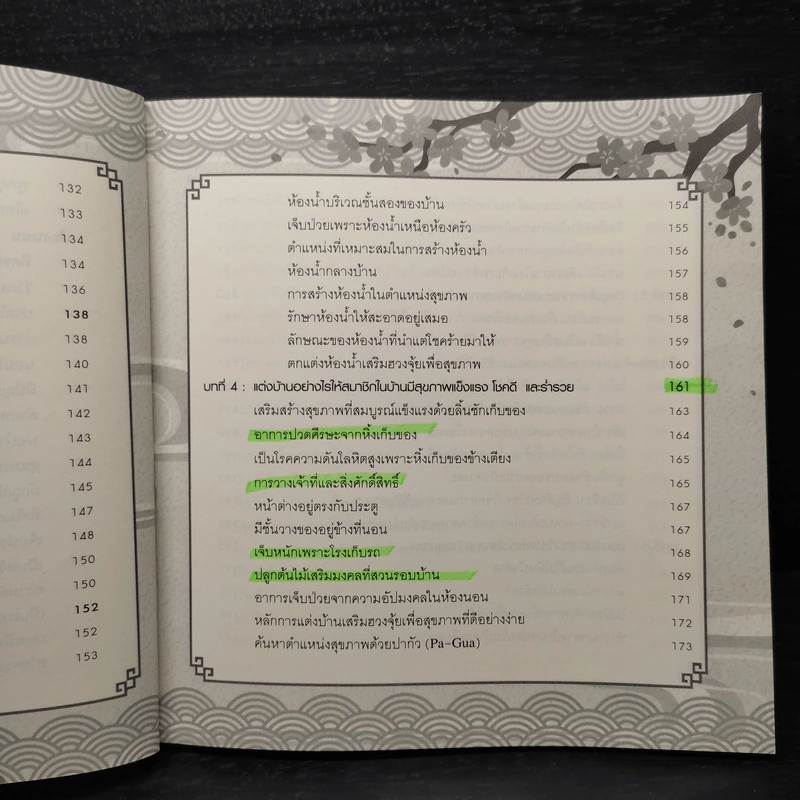 132
133
134
134
136
138
138
140
141
142
143
144
145
147
148
150
150
152
152
153
ห้องน้ำบริเวณชั้นสองของบ้าน 154
เจ็บป่วยเพราะห้องน้ำเหนือห้องครัว 155
ตำแหน่งที่เหมาะสมในการสร้างห้องน้ำ 156
ห้องน้ำกลางบ้าน 157
การสร้างห้องน้ำในตำแหน่งสุขภาพ 158
รักษาห้องน้ำให้สะอาดอยู่เสมอ 158
ลักษณะของห้องน้ำที่นำแต่โชคร้ายมาให้ 159
ตกแต่งห้องน้ำเสริมฮวงจุ้ยเพื่อสุขภาพ 160
บทที่ 4 : แต่งบ้านอย่างไรให้สมาชิกในบ้านมีสุขภาพแข็งแรง โชคดี และร่ำรวย 161
เสริมสร้างสุขภาพที่สมบูรณ์แข็งแรงด้วยลิ้นชักเก็บของ 163
อาการปวดศีรษะจากหิ้งเก็บของ 164
เป็นโรคความดันโลหิตสูงเพราะหิ้งเก็บของข้างเตียง 165
การวางเจ้าที่และสิ่งศักดิ์สิทธิ์ 165
หน้าต่างอยู่ตรงกับประตู 167
มีชั้นวางของอยู่ข้างที่นอน 167
เจ็บหนักเพราะโรงเก็บรถ 168
ปลูกต้นไม้เสริมมงคลที่สวนรอบบ้าน 169
อาการเจ็บป่วยจากความอัปมงคลในห้องนอน 171
หลักการแต่งบ้านเสริมฮวงจุ้ยเพื่อสุขภาพที่ดีอย่างง่าย 172
ค้นหาตำแหน่งสุขภาพด้วยปากัว (Pa-Gua) 173